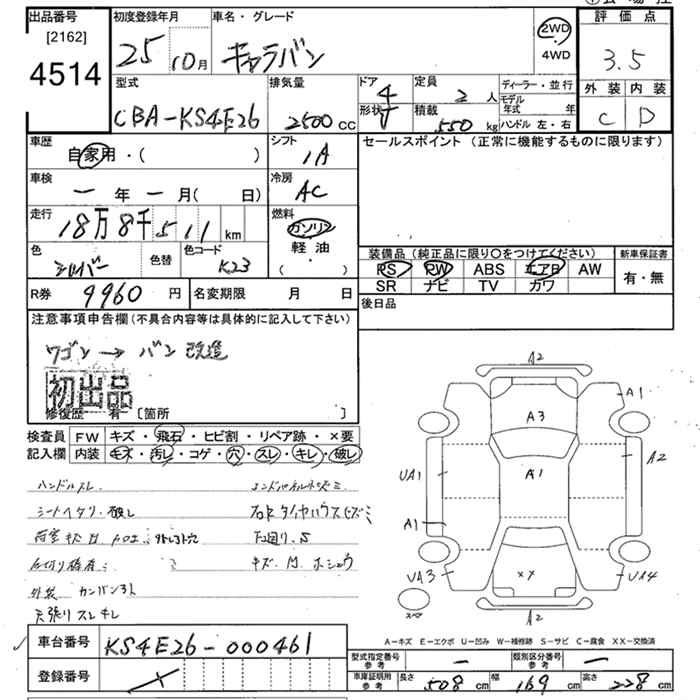 出品番号 初度登録年月 車名・グレード 評価点
[2162] 2WD
4514 25 10月 キャラバン 4WD 3.5
型式 排気量 ドア 定員 ディーラー・並行 外装 内装
4 2人 モデル年式 年
CBA-KS4E26 2500cc 形状 V 積載 550kg ハンドル 左・右 C D
車歴 シフト セールスポイント(正常に機能するものに限ります)
自家用・( ) 1A
車検 冷房
ー年ー月( 日) AC
走行 燃料
18万8千511km ガソリン
色 色替 色コード 軽油
シルバー K23 ( ・ )
装備品(純正品に限り〇をつけてください) 新車保証書
PS PW ABS エアB AW 有・無
SR ナビ TV カワ
R券 9960円 名変期限 月 日 後日品
注意事項申告欄(不具合内容等は具体的に記入して下さい)
ワゴン→バン 改造
初出品
修復歴 有 [箇所 ]
検査員 FW キズ・飛石・ヒビ割・リペア跡・×要
記入欄 内装 キズ・汚レ・コゲ・穴・スレ・キレ・破レ
ハンドルスレ
シートヘタリ・破レ
荷室キズ凹
下回りS
キズ凹ホシュウ
外装 カンバン跡
天張りスレキレ
A2
A3
A1
A1
A2
UA1
A1
UA3
××
UA4
A2
A-キズ E-エクボ U-凹み W-補修跡 S-サビ C-腐食 XX-交換済
車台番号 KS4E26-000461
登録番号
型式指定番号 参考 ー 類別区分番号 参考 ー
車庫証明用 参考 長さ 508cm 幅 169cm 高さ 228cm